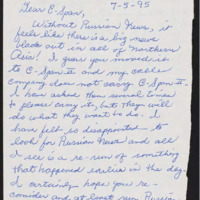 7-5-95
Dear C-Span,
Without Russian News, it
feels like there is a big news
black out in all of Northern
Asia! I guess you moved it
to C-Span II and my cable
Company does not carry C-Span II.
I have asked them several times
to please carry it, but they will
do what they want to do. I
have felt so disappointed to
look for Russian News and all
I see is a re-run of something
that happened earlier in the day.
I certainly hope you re-
consider and at least run Russian